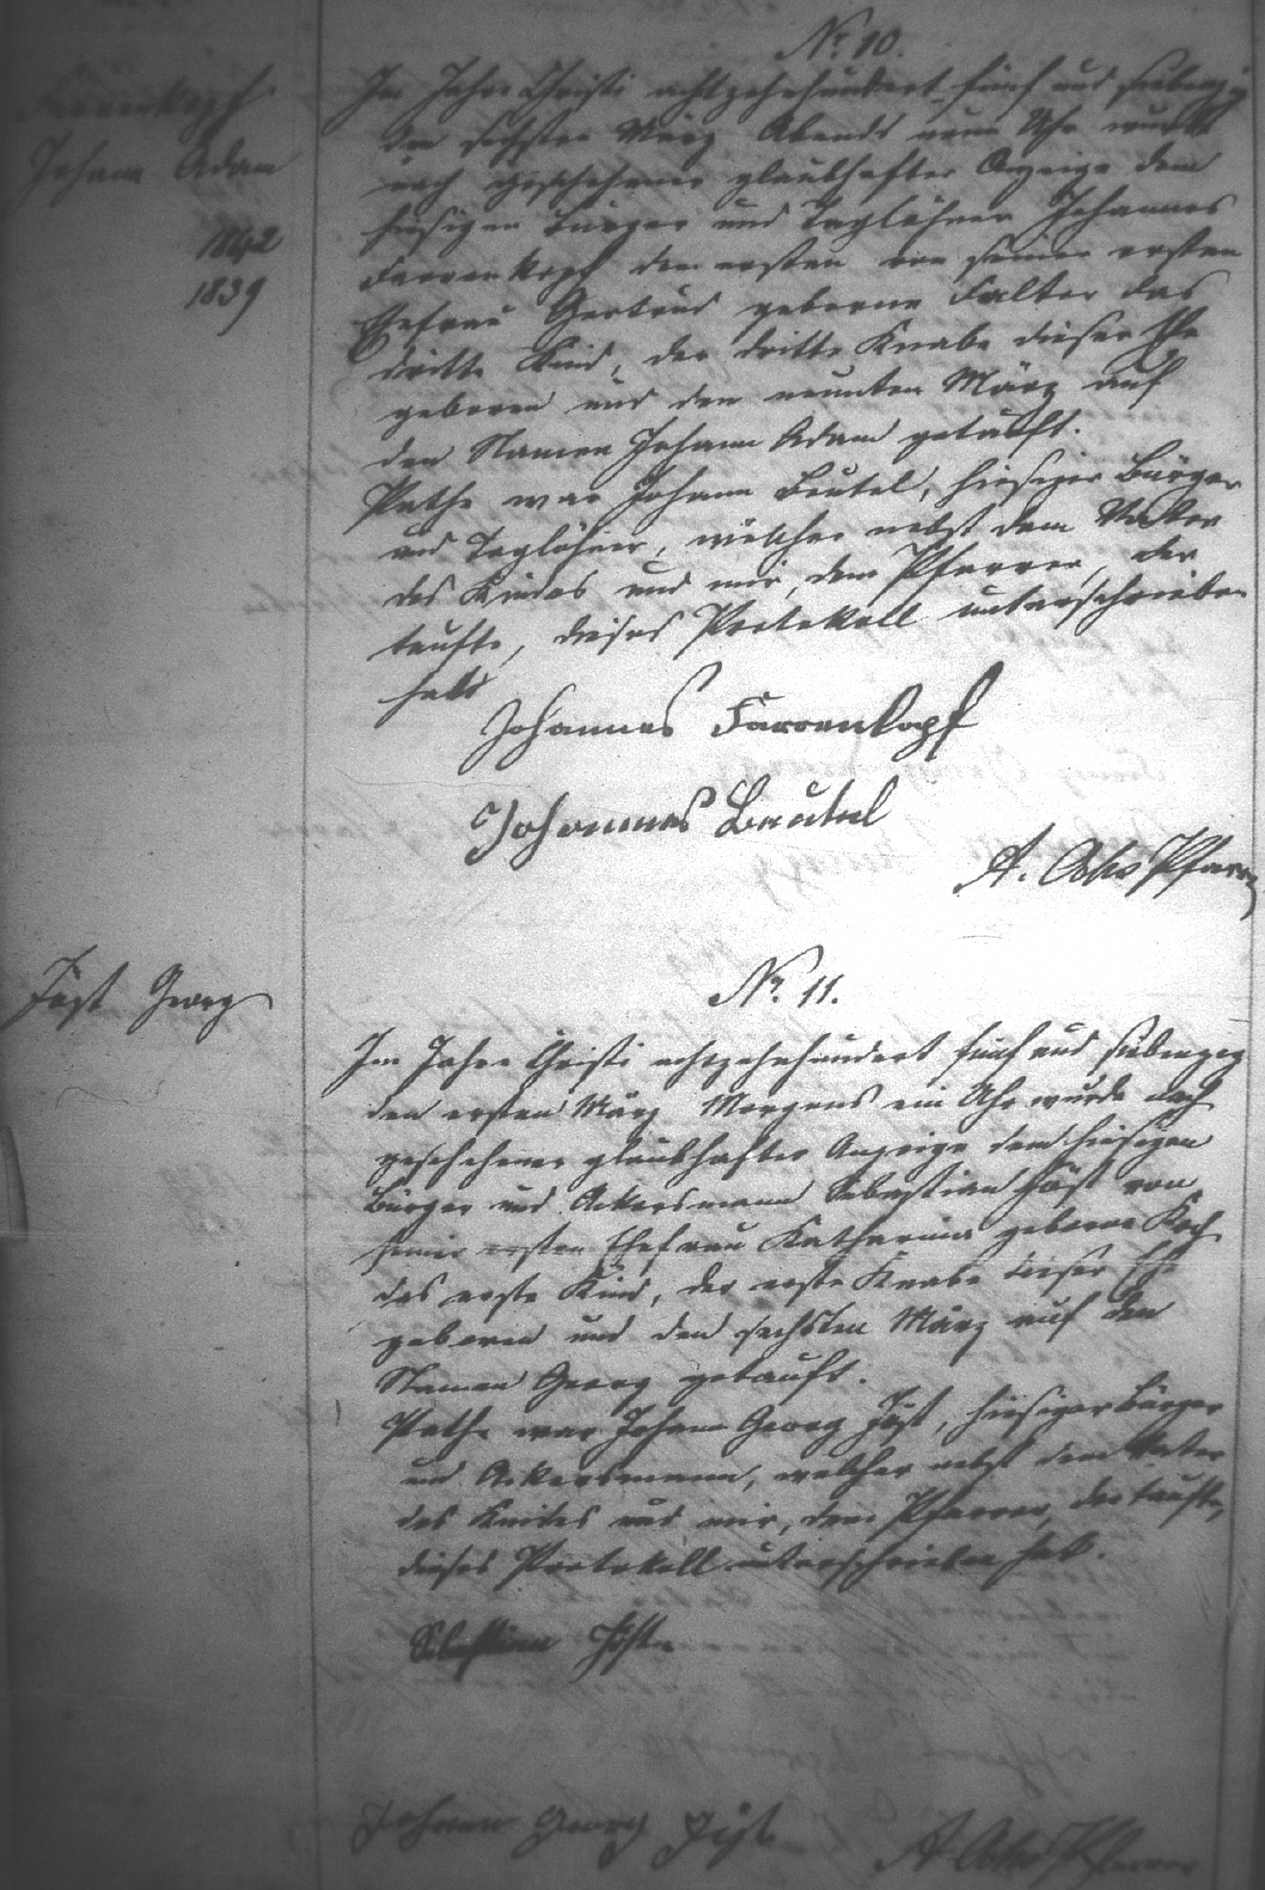 Nr. 10.
Farrenkopf
Johann Adam
1842
1839
Im Jahre Christi achtzehnhundert fünf und siebenzig
den sechsten März Abends neun Uhr wurde
nach geschehener glaubhafter Anzeige dem
hiesigen Bürger und Taglöhner Johannes
Farrenkopf dem ersten von seiner ersten
Ehefrau Gertrud geborene Falter das
dritte Kind, der dritte Knabe dieser Ehe
geboren und den neunten März auf
den Namen Johann Adam getauft.
Pathe war Johann Beutel, hiesiger Bürger
und Taglöhner, welcher nebst dem Vater
des Kindes und mir, dem Pfarrer, der
taufte, dieses Protokoll unterschrieben
hat.
Johannes Farrenkopf
Johannes Beutel
A. Pfarrer
Nr. 11.
Jöst Georg
Im Jahre Christi achtzehnhundert fünf und siebenzig
den ersten März Morgens ein Uhr wurde nach
geschehener glaubhafter Anzeige dem hiesigen
Bürger und Ackersmann Sebastian Jöst von
seiner ersten Ehefrau Katharina geborene Koch
das erste Kind, der erste Knabe dieser Ehe
geboren und den sechsten März auf den
Namen Georg getauft.
Pathe war Johann Georg Jöst, hiesiger Bürger
und Ackersmann, welcher nebst dem Vater
des Kindes und mir, dem Pfarrer, der taufte,
dieses Protokoll unterschrieben hat.
Sebastian Jöst
Johann Georg Jöst
A. Pfarrer